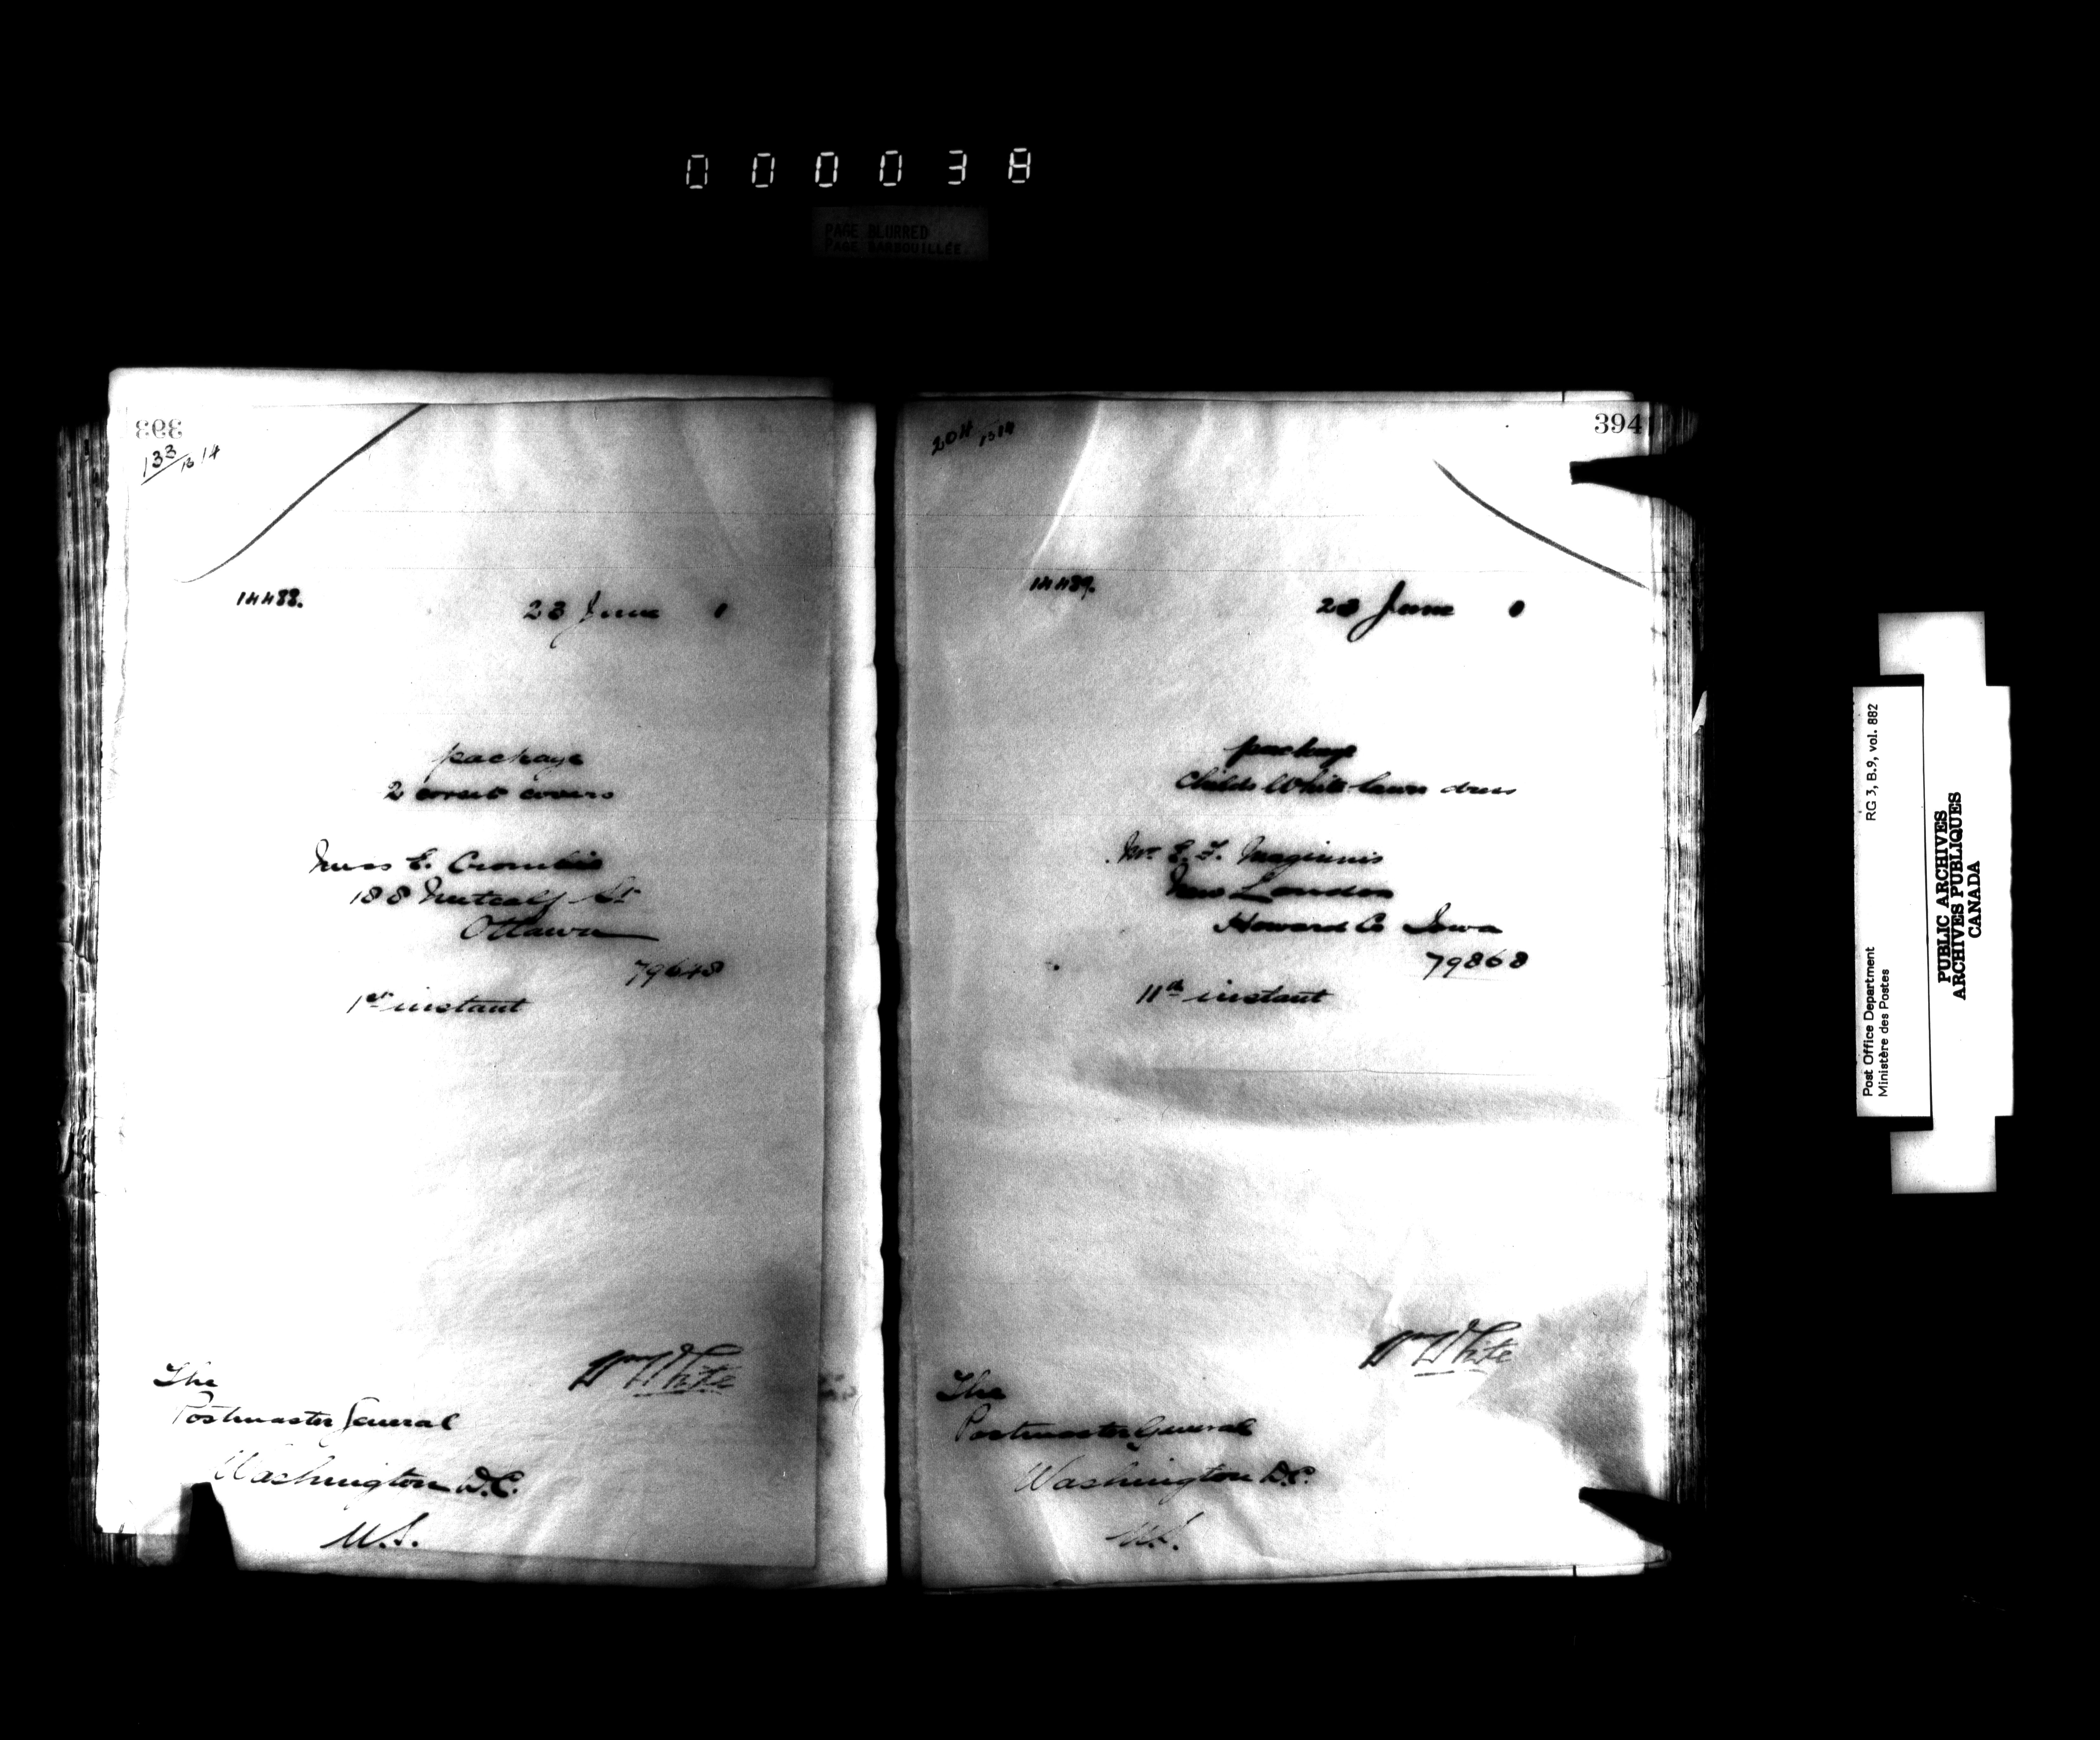 000038
PAGE BLURRED
PAGE BARBOUILLÉE
393
133/1314
14488.
23 June 1
package
2 corset covers
Miss E. Crombie
188 Metcalf St
Ottawa
79648
1st instant
Wm White
The
Postmaster General
Washington D.C.
U.S.
394
204 1314
14489.
23 June
package
Childs White lawn dress
Mr. E. F. Maginnis
New London
Howard Co Iowa
79868
11th instant
Wm White
The
Postmaster General
Washington D.C.
U.S.
Post Office Department
Ministère des Postes
RG 3, B.9, vol. 882
PUBLIC ARCHIVES
ARCHIVES PUBLIQUES
CANADA